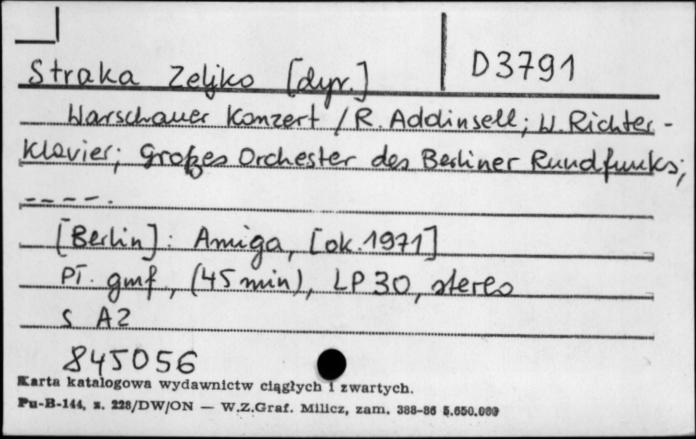 Straka Zeljko [dyr.] D3791
Warschauer Konzert / R. Addinsell; W. Richter -
Klavier; Großes Orchester des Berliner Rundfunks;
----.
[Berlin]: Amiga, [ok. 1971]
Pł. gmf., (45 min), LP 30, stereo
S A2
845056
Karta katalogowa wydawnictw ciągłych i zwartych.
Pu-B-144, z. 228/DW/ON — W.Z.Graf. Milicz, zam. 388-86 5.650.000